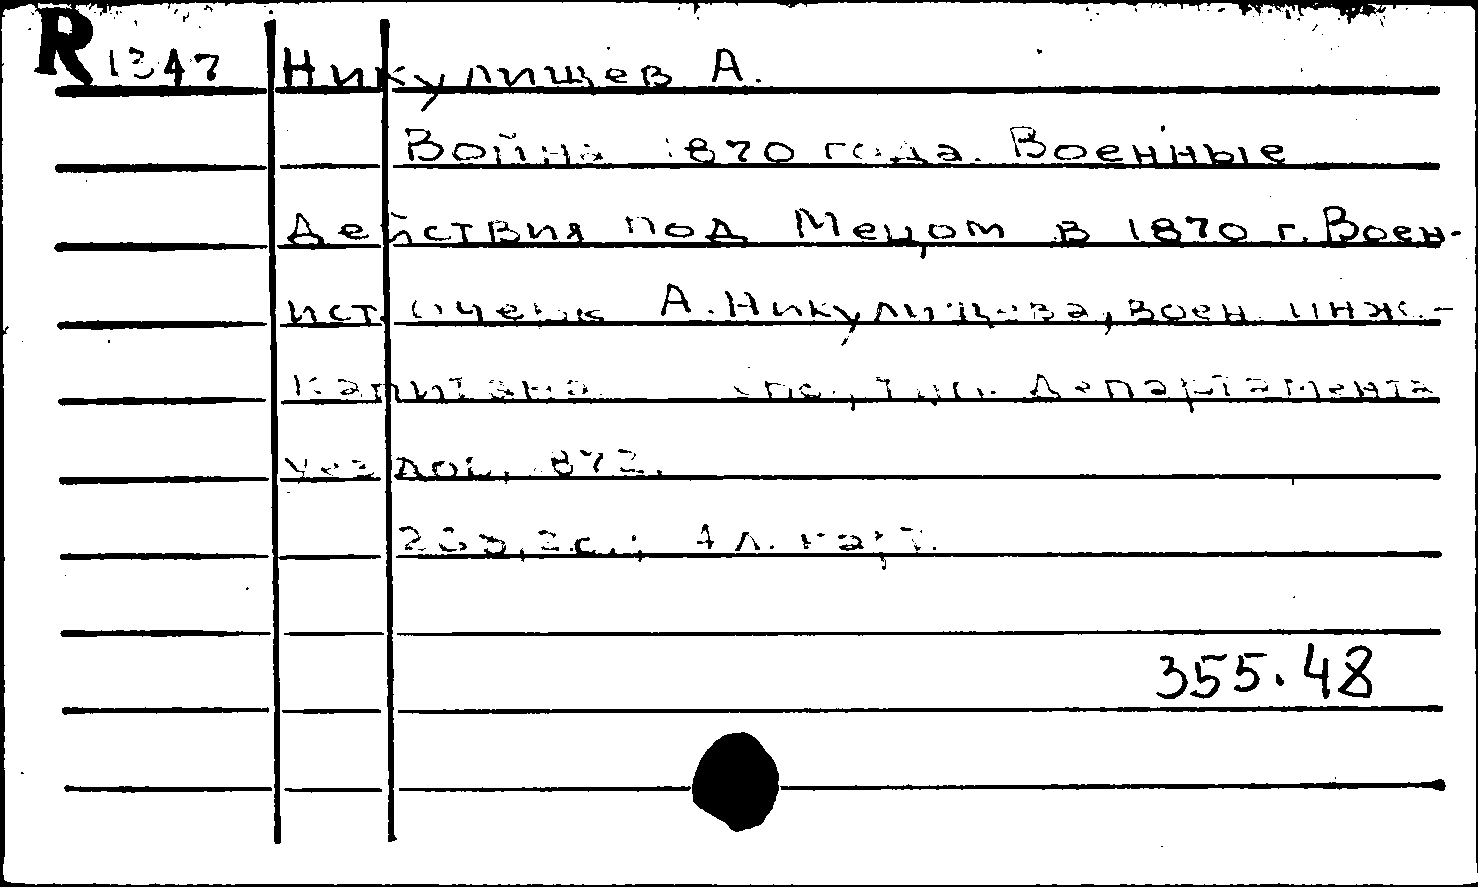 R 1347 Никулищев А.
Война 1870 года. Военные
действия под Мецом в 1870 г. Воен-
ист. очерк А. Никулищева, воен. инж.-
капитана Спб., Тип. Департамента
уездов, 1872.
2 с.; 4 л. карт.
355.48